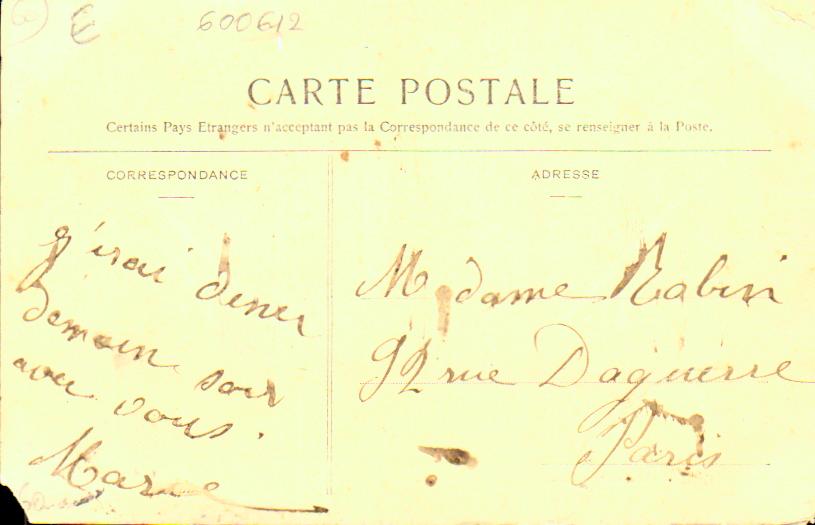 600612
CARTE POSTALE
Certains Pays Etrangers n'acceptant pas la Correspondance de ce côté, se renseigner à la Poste.
CORRESPONDANCE
j'irai diner
demain soir
avec vous.
Marie
ADRESSE
Madame Rabin
92 rue Daguerre
Paris